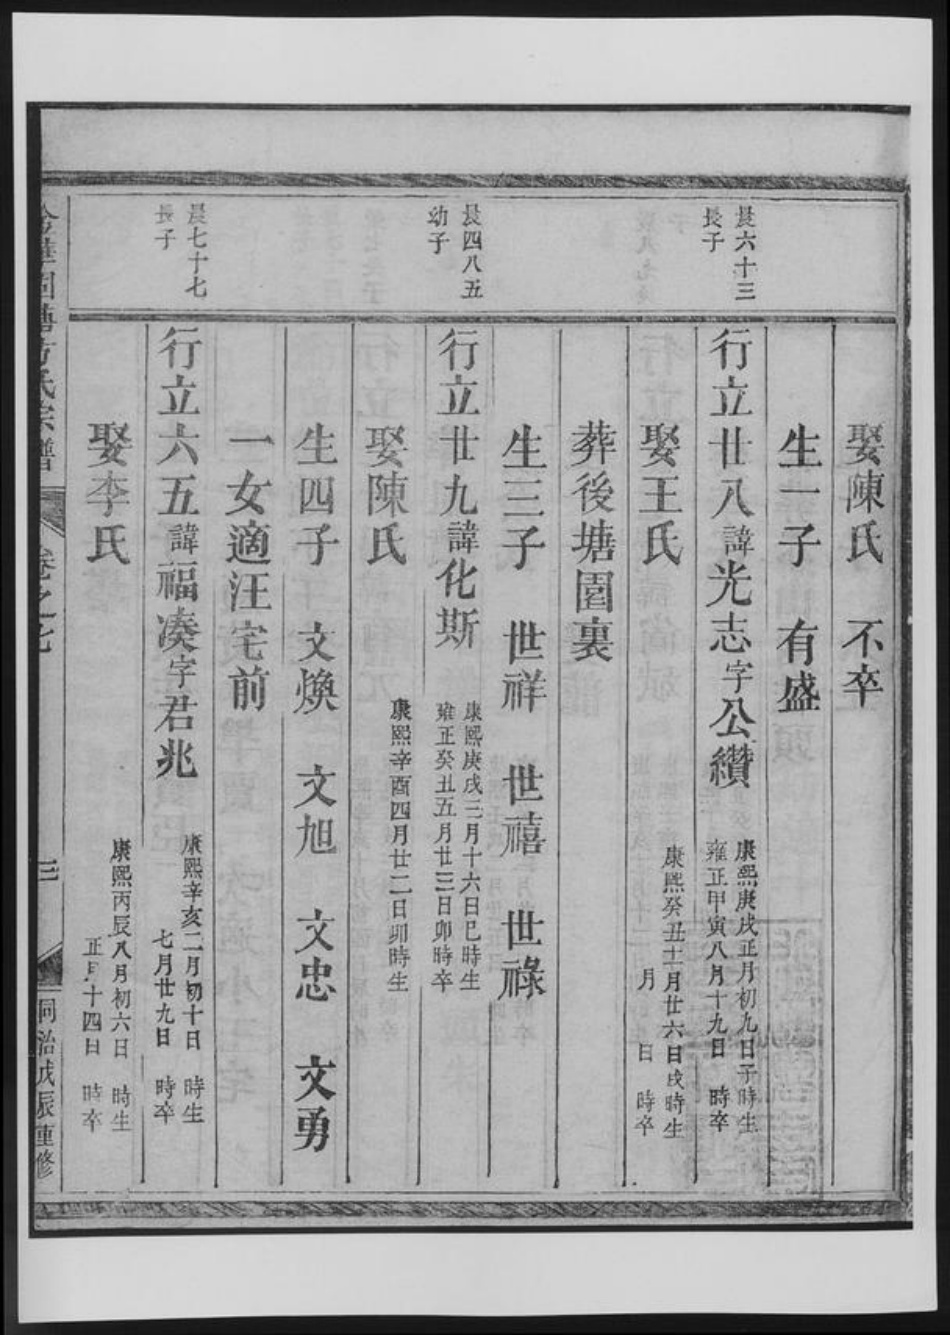 娶陳氏　不卒
生一子　有盛
晨六十三
長子
行立廿八諱光志字公纘
康熙庚戌正月初九日子時生
雍正甲寅八月十九日　時卒
娶王氏
康熙癸丑十一月廿六日戌時生
月　日　時卒
葬後塘園裏
生三子　世祥　世禧　世祿
晨四八五
幼子
行立廿九諱化斯
康熙庚戌三月十六日巳時生
雍正癸丑五月廿三日卯時卒
娶陳氏
康熙辛酉四月廿二日卯時生
生四子　文煥　文旭　文忠　文勇
一女適汪宅前
晨七十七
長子
行立六五諱福凑字君兆
康熙辛亥二月初十日　時生
七月廿九日　時卒
娶李氏
康熙丙辰八月初六日　時生
正月十四日　時卒
方氏宗譜
卷之七
三
同治戊辰重修